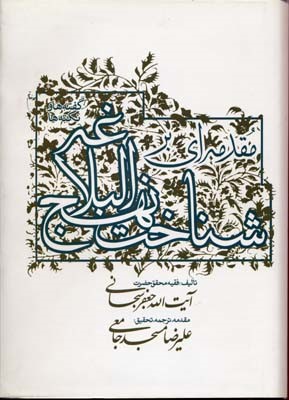 گفته‌ها و
نکته‌ها
مقدمه‌ای بر
شناخت نهج البلاغه
تألیف: فقیه محقق حضرت
آیت الله جعفر سبحانی
مقدمه، ترجمه، تحقیق:
علیرضا مسجد جامعی